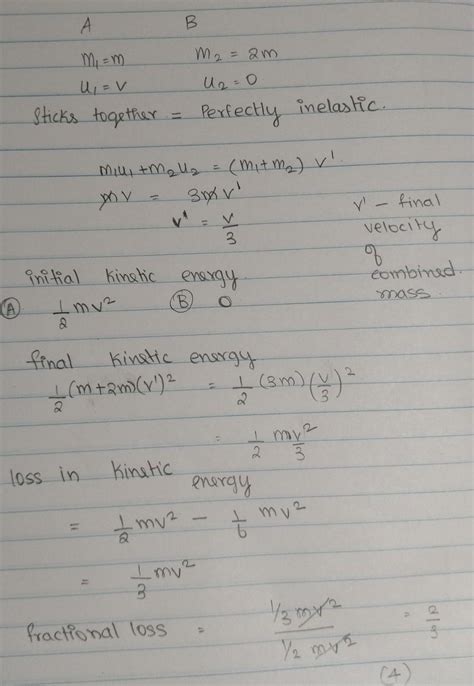 A B
m₁=m m₂ = 2m
u₁ = v u₂ = 0
Sticks together = Perfectly inelastic.
m₁u₁ + m₂u₂ = (m₁+m₂) v'
mv = 3mv'
v' = v/3
v' - final
velocity
of
combined
mass
initial kinetic energy
Ⓐ 1/2 mv² Ⓑ 0
final kinetic energy
1/2 (m+2m)(v')² = 1/2 (3m) (v/3)²
= 1/2 mv²/3
loss in kinetic energy
= 1/2 mv² - 1/6 mv²
= 1/3 mv²
fractional loss = (1/3 mv²)/(1/2 mv²) = 2/3
(4)